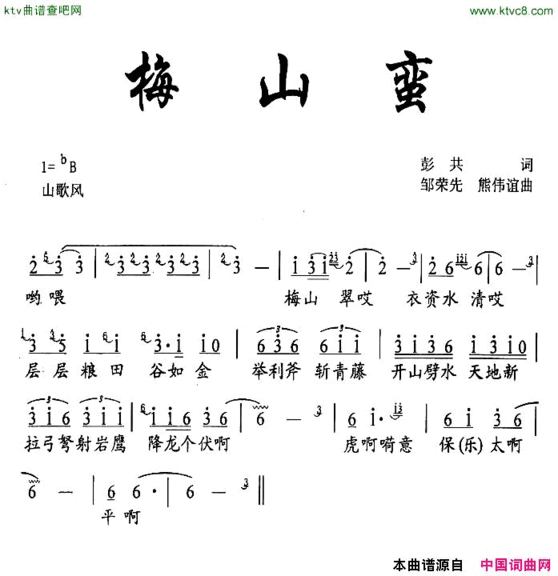 ktv曲谱查吧网 www.ktvc8.com
梅山蛮
1=ᵇB 彭共 词
山歌风 邹荣先 熊伟谊曲
哟喂 梅山 翠哎 衣资水 清哎
层层粮田 谷如金 举利斧 斩青藤 开山劈水 天地新
拉弓弩射岩鹰 降龙个伏啊 虎啊嗬意 保(乐)太啊
平啊
本曲谱源自 中国词曲网